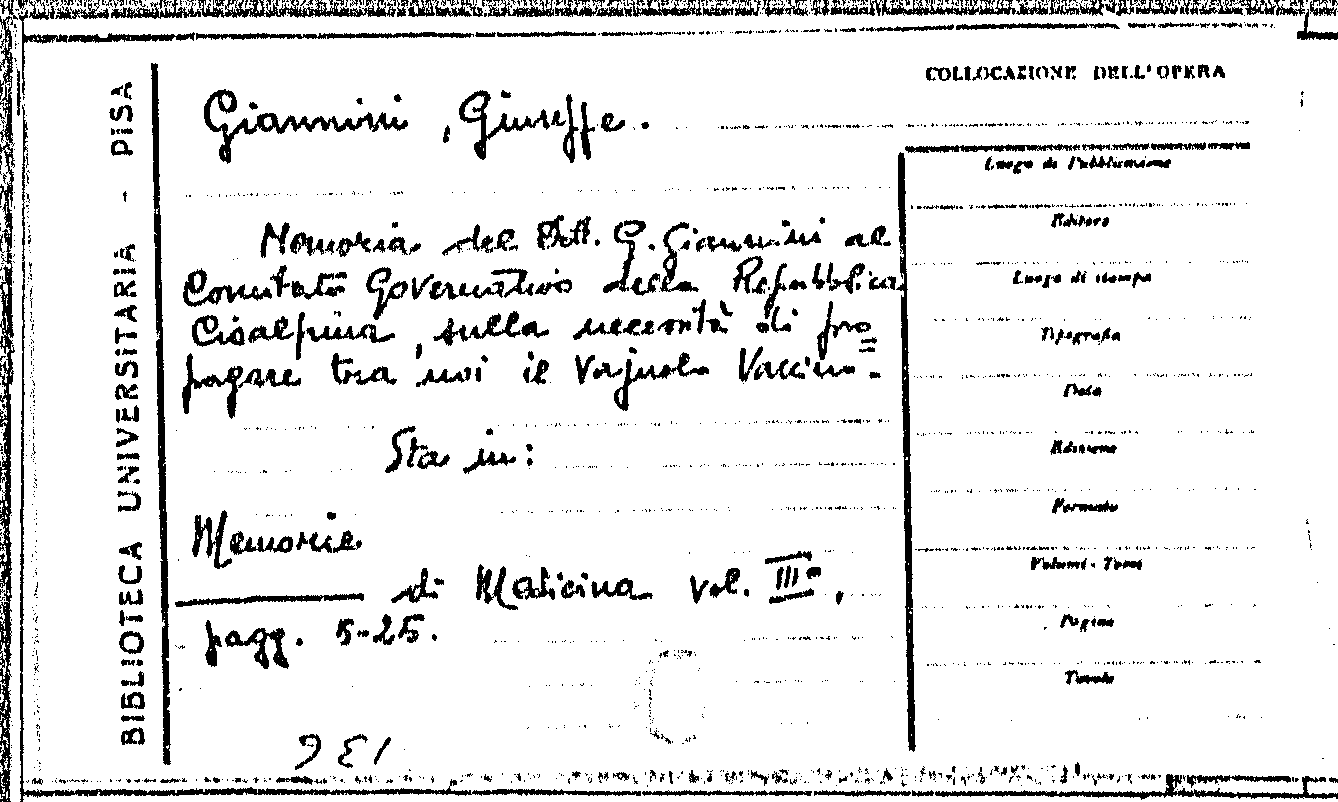 BIBLIOTECA UNIVERSITARIA - PISA
COLLOCAZIONE DELL'OPERA
Giannini, Giuseppe.
Memoria del Dott. G. Giannini al
Comitato Governativo della Repubblica
Cisalpina, sulla necessità di pro=
pagare tra noi il Vajuolo Vaccino.
Sta in:
Memorie
di Medicina vol. III°,
pagg. 5-25.
136
Luogo di Pubblicazione
Editore
Luogo di stampa
Tipografia
Data
Edizione
Formato
Volumi - Tomi
Pagine
Tavole